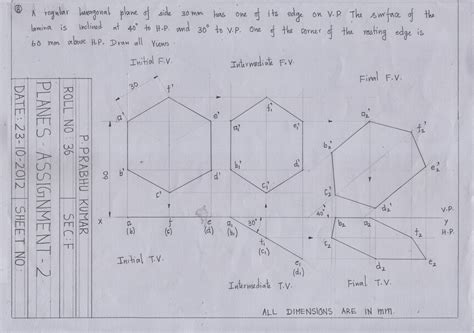 ② A regular hexagonal plane of side 30 mm has one of its edge on V.P. The surface of the
lamina is inclined at 40° to H.P. and 30° to V.P. One of the corner of the resting edge is
60 mm above H.P. Draw all Views
Initial F.V.
Intermediate F.V.
Final F.V.
30
f' f₁' f₂'
a' e' a₁' e₁' a₂'
b' d' b₁' d₁' b₂' e₂'
c' c₁' c₂' d₂'
60
X
a f e
(b) (c) (d)
a₁
(b₁)
30°
f₁
(c₁)
e₁
(d₁)
40°
b₂ a₂
c₂ f₂
d₂ e₂
V.P.
Y
H.P.
Initial T.V.
Intermediate T.V.
Final T.V.
ALL DIMENSIONS ARE IN mm.
P. PRABHU KUMAR
ROLL NO 36 SEC:F
PLANES - ASSIGNMENT - 2
DATE: 23-10-2012 SHEET NO: